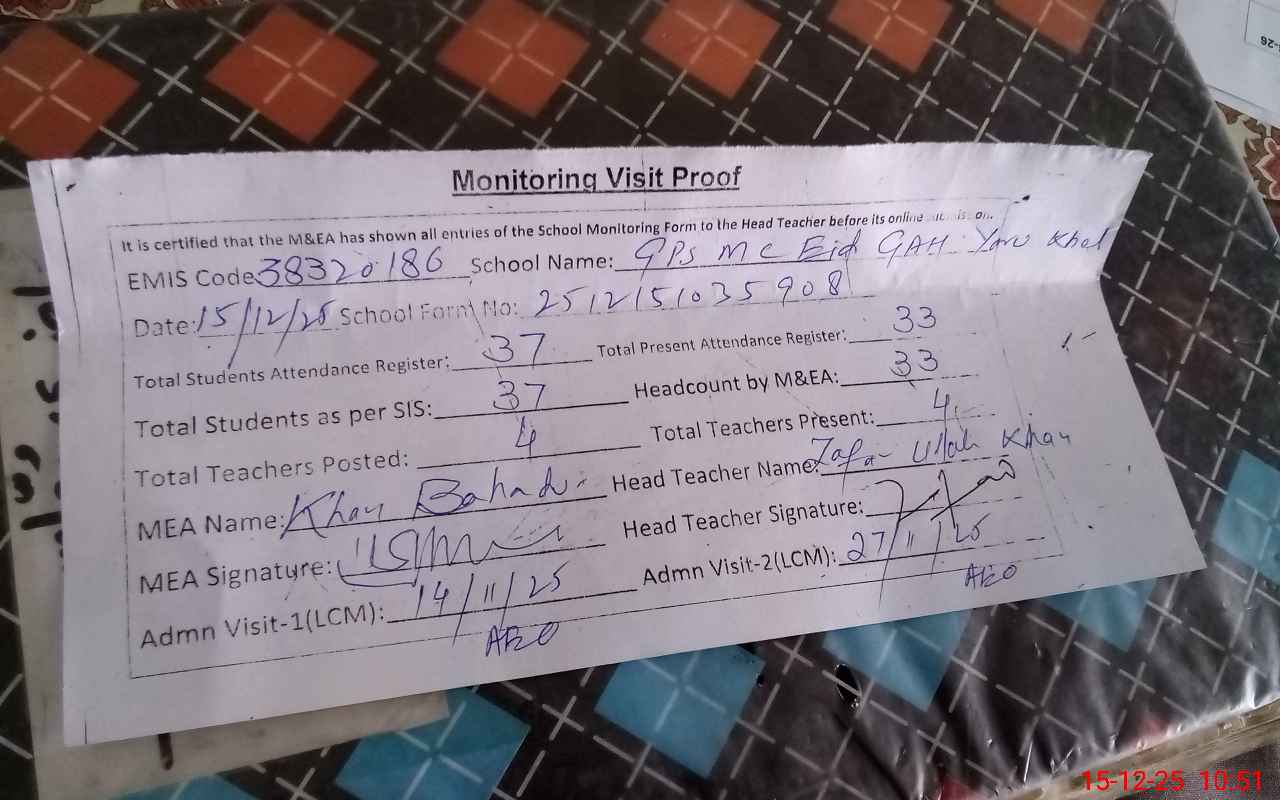 Monitoring Visit Proof
It is certified that the M&EA has shown all entries of the School Monitoring Form to the Head Teacher before its online
EMIS Code 38320186 School Name: GPS MC Eid GAH Yaru Khel
Date: 15/12/25 School Form No: 2512151035908
Total Students Attendance Register: 37 Total Present Attendance Register: 33
Total Students as per SIS: 37 Headcount by M&EA: 33
Total Teachers Posted: 4 Total Teachers Present: 4
MEA Name: Khan Bahadur Head Teacher Name: Zafar Ullah Khan
MEA Signature: Head Teacher Signature:
Admn Visit-1(LCM): 14/11/25 Admn Visit-2(LCM): 27/11/25
AEO AEO
15-12-25 10:51